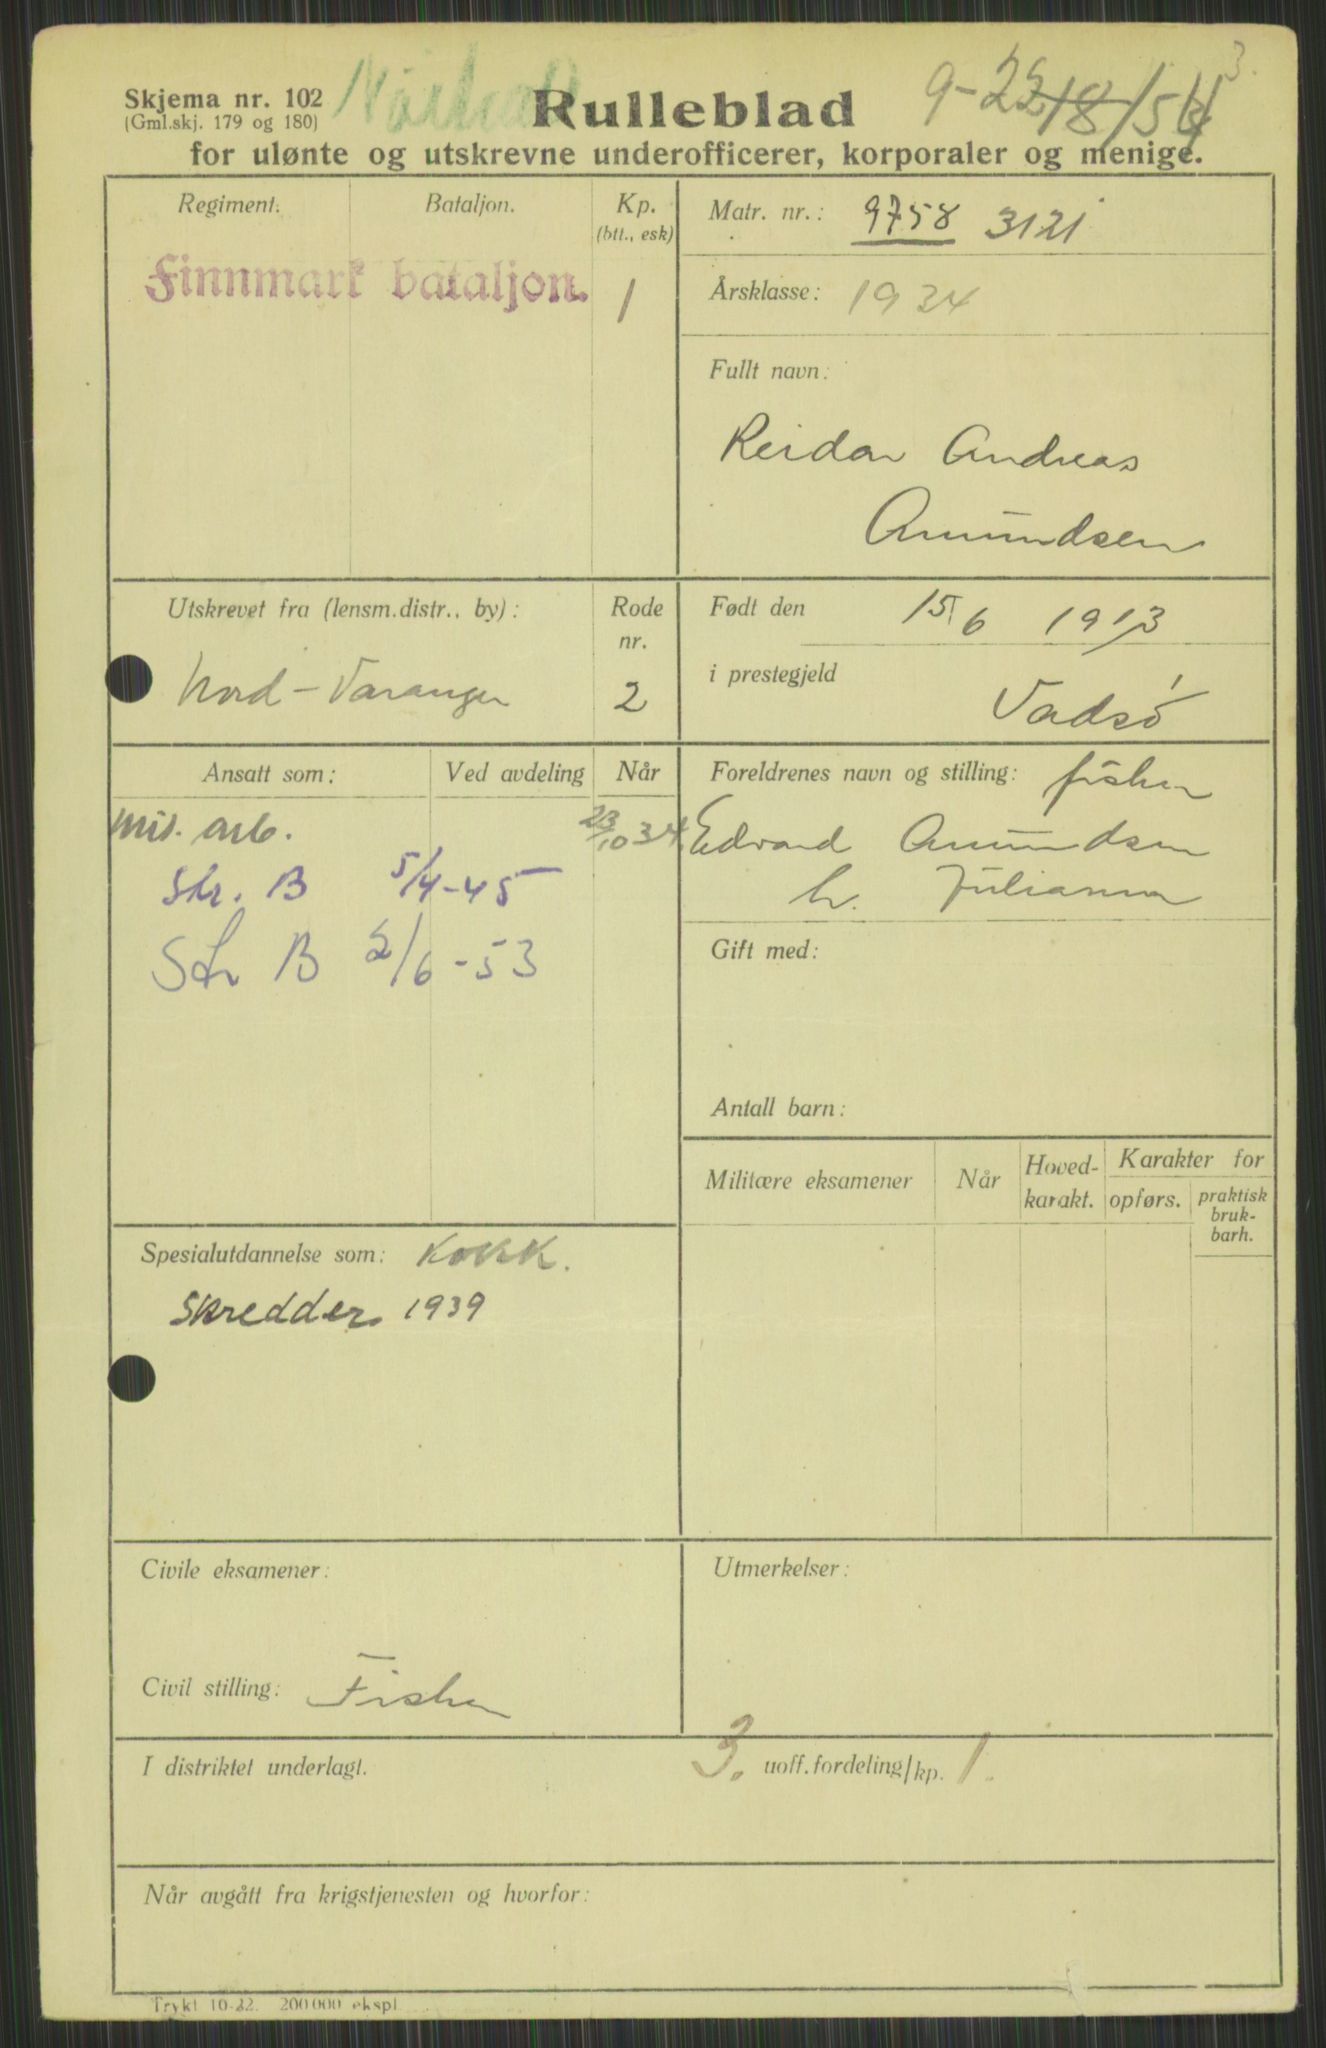 Skjema nr. 102
(Gml.skj. 179 og 180)
Rulleblad
for ulønte og utskrevne underofficerer, korporaler og menige.
Regiment. Bataljon. Kp.
(btt., esk)
Finnmark bataljon. 1
Matr. nr.: 9758 3121
Årsklasse: 1934
Fullt navn:
Reidar Andreas
Amundsen
Utskrevet fra (lensm.distr., by): Rode
nr.
Nord-Varanger 2
Født den 15/6 1913
i prestegjeld
Vadsø
Ansatt som: Ved avdeling Når
Mil. arb. 23/10 34
Skr. B 5/4-45
Skr B 2/6-53
Foreldrenes navn og stilling: fisker
Edvard Amundsen
h. Julianna
Gift med:
Antall barn:
Militære eksamener Når Hoved-
karakt. Karakter for
opførs. praktisk
bruk-
barh.
Spesialutdannelse som: Kokk.
Skredder 1939
Civile eksamener:
Utmerkelser:
Civil stilling: Fisker
I distriktet underlagt. 3. uoff.fordeling/kp. 1.
Når avgått fra krigstjenesten og hvorfor:
Trykt 10-32. 200 000 ekspl.